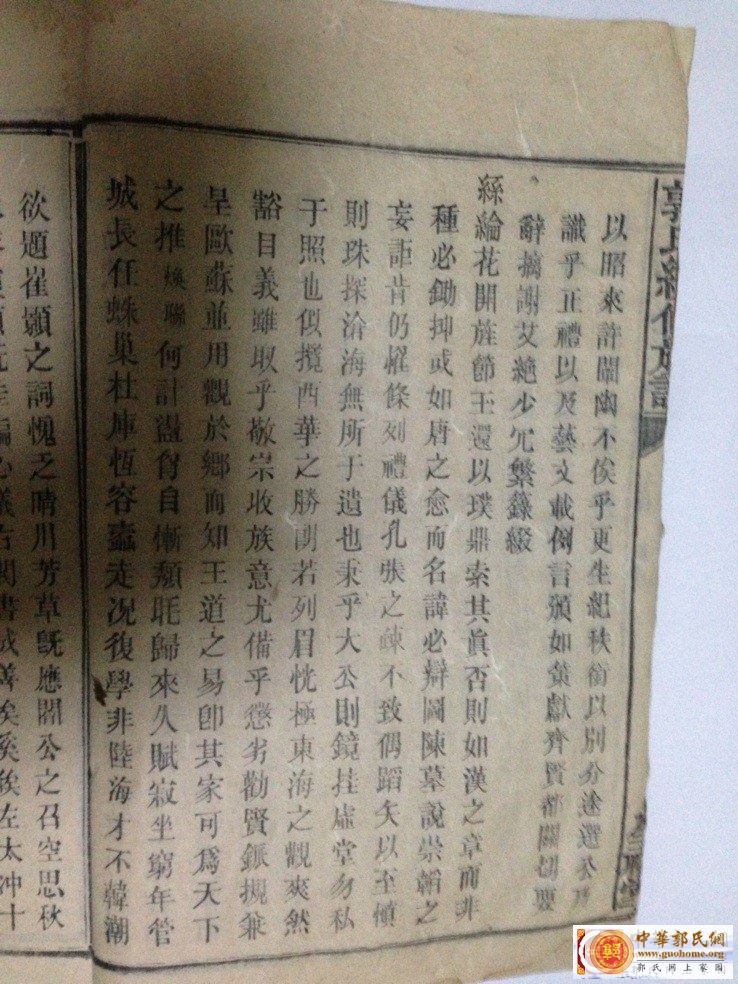 以昭來許闡幽不俟乎更生紀秩銜以別分途選公乃
識乎正禮以及藝文載倒言頒如策獻齊賢都關切要
辭摘謝艾絕少冗繁藻綴
絲綸花開旌節王還以璞鼎索其真否則如漢之章而非
種必鋤抑或如唐之愈而名諱必辯圖陳墓說崇韜之
妄詎昔仍擢條列禮儀孔戣之疎不致偶蹈矣以至慎
則珠探滄海無所于遺也秉乎大公則鏡挂虛堂勿私
于照也似攬西華之勝萌若列眉恍極東海之觀爽然
豁目義雖取乎敬宗收族意尤備乎懲劣勸賢鏂摫兼
呈歐蘇並用觀於鄉而知王道之易卽其家可爲天下
之推煥聯何計盥胷自慚頹毦歸來久賦寂坐窮年管
城長任蛛巢杜庫恆容蠹走况復學非陸海才不韓潮
欲題崔顥之詞愧乏晴川芳草旣應閣公之召空思秋
中華郭氏網
www.guohome.org
郭氏網上家園